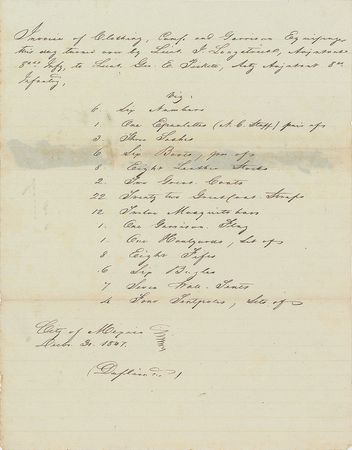 Invoice of Clothing, Camp and Garrison Equipage
this day turned over by Lieut. J. Longstreet, Adjutant
8th Infy, to Lieut. Geo. E. Pickett, Actg Adjutant 8th
Infantry,
Viz:
6. Six Numbers
1. One Epaulettes (N. C. Staff) pair of
3 Three Sashes
6 Six Boxes, pair of
8 Eight Leather Stocks
2. Two Great Coats
22 Twenty two Great Coat Straps
12 Twelve Mosquito bars
1. One Garrison Flag
1. One Halyards, Set of
8 Eight Fifes
6 Six Bugles
7 Seven Wall-Tents
4 Four Tentpoles, Sets of
City of Mexico
30. 1847.
(Duplicate)